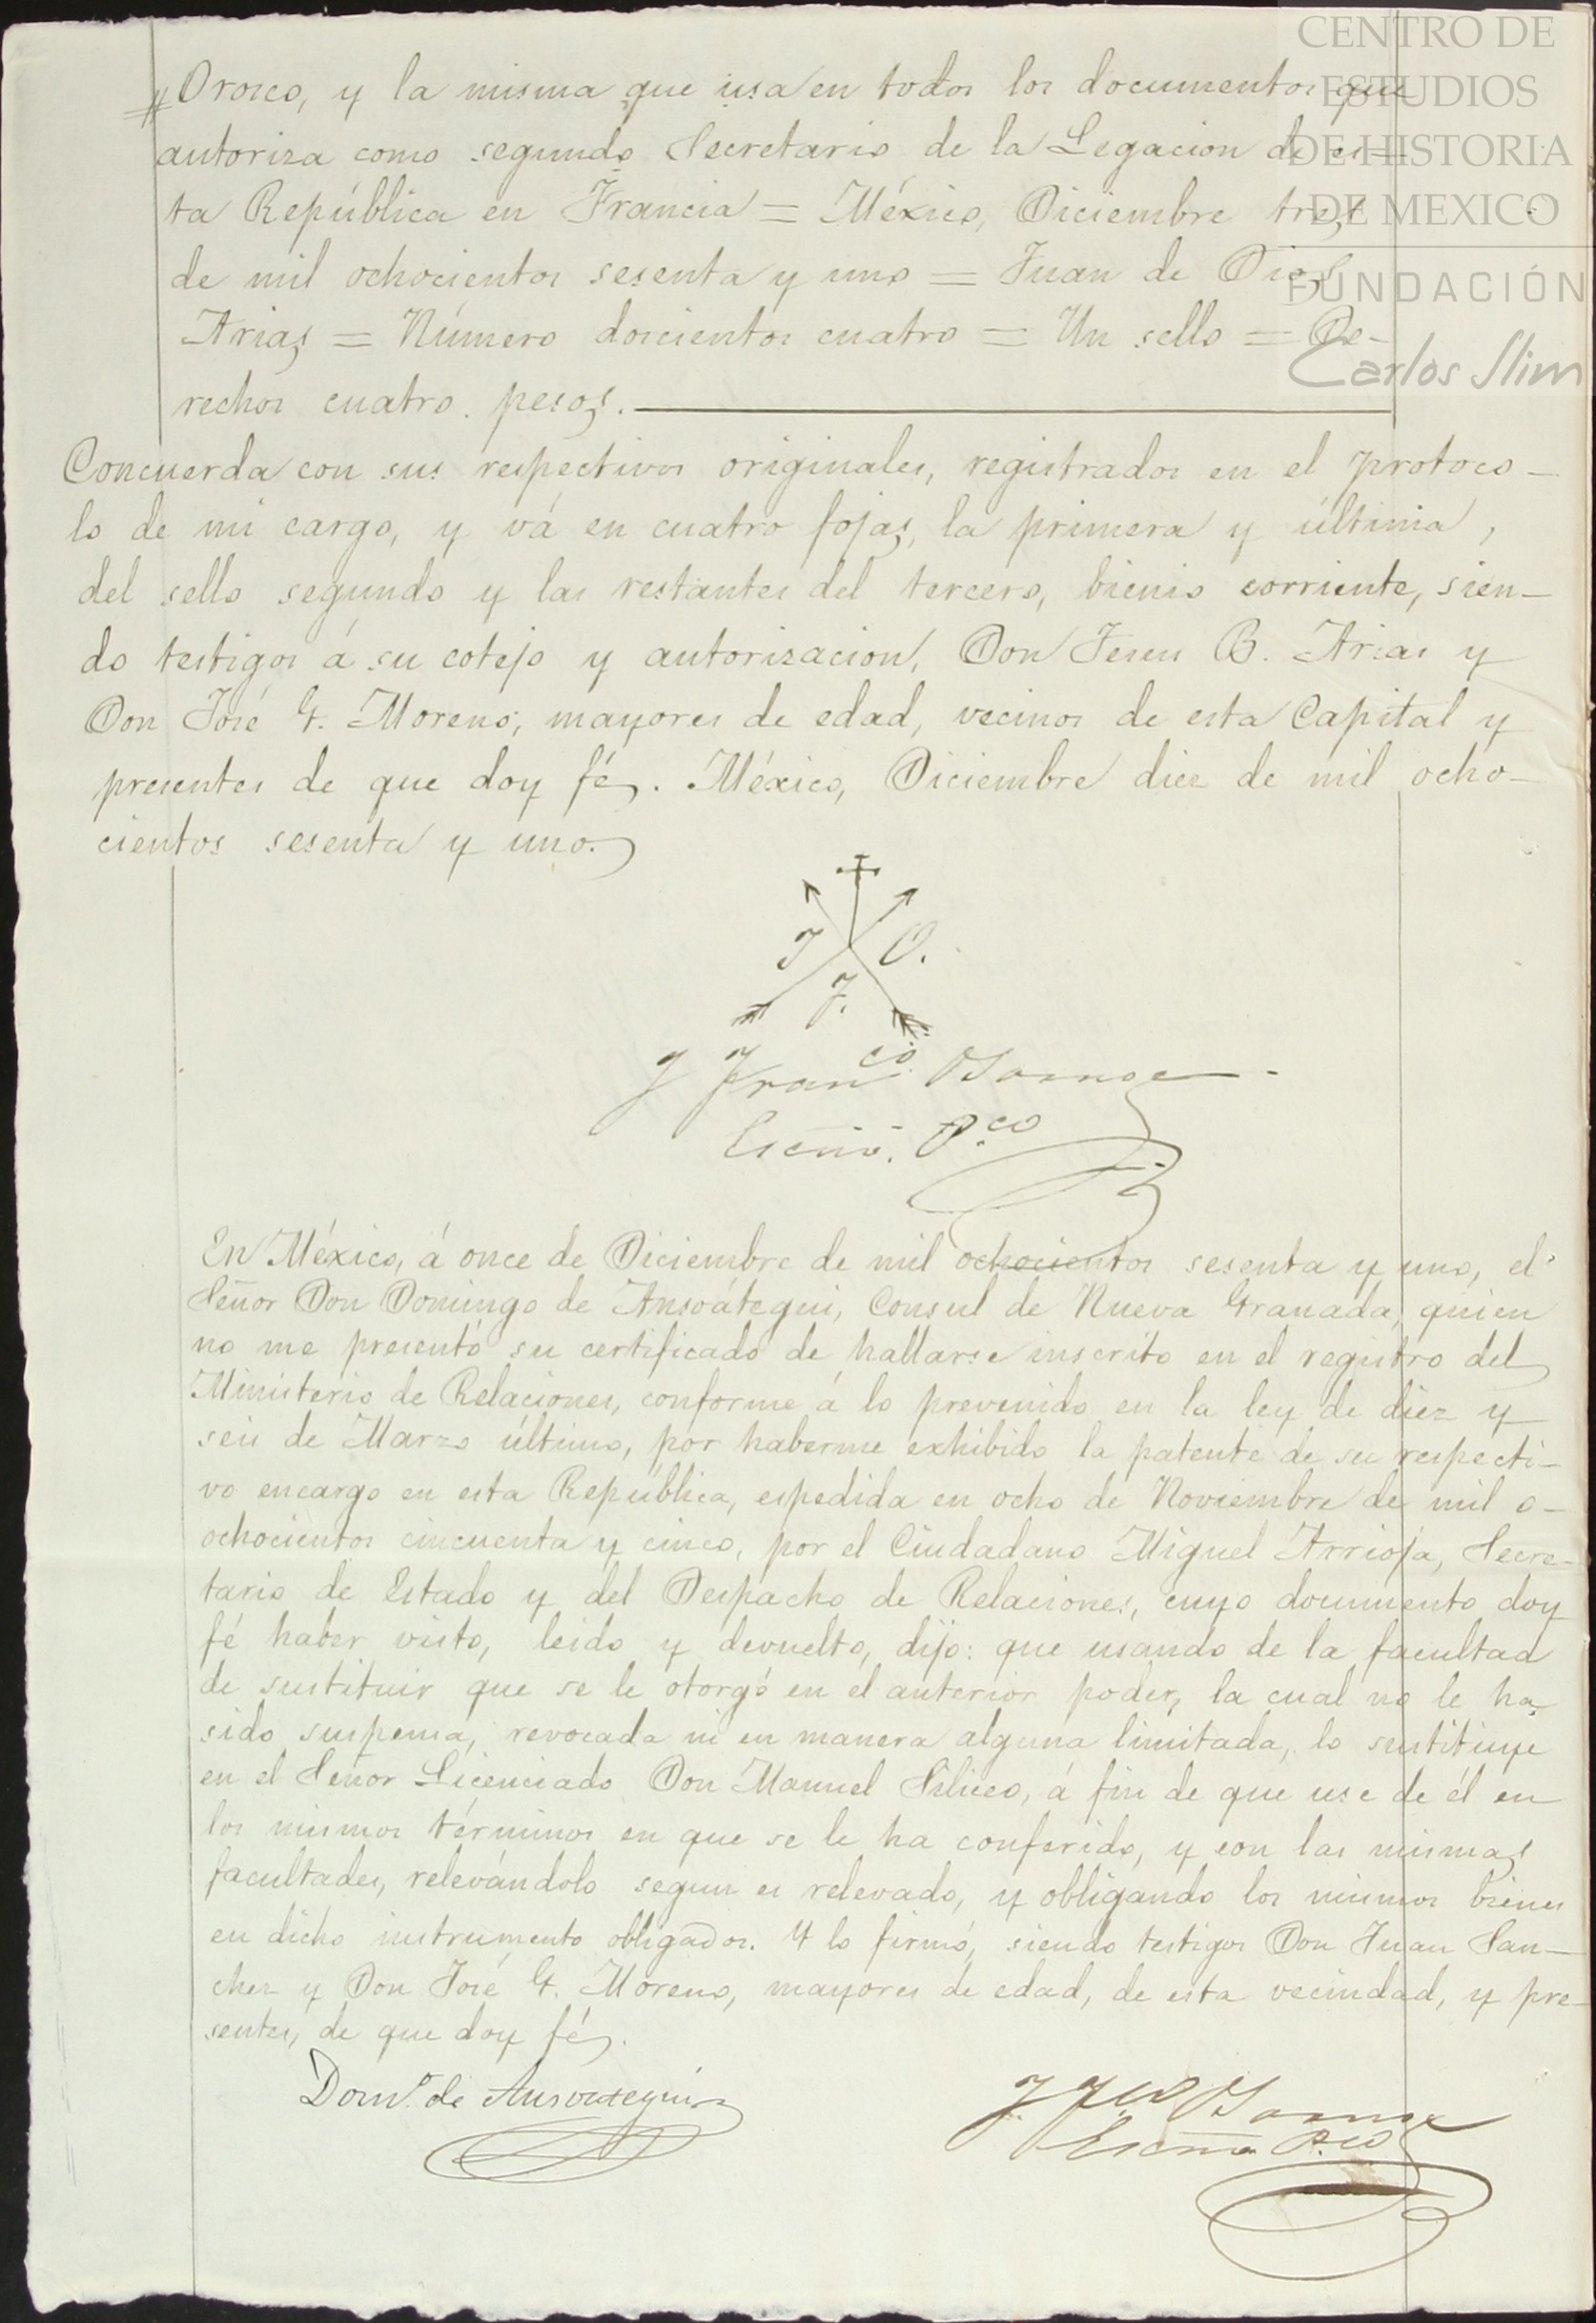 CENTRO DE
ESTUDIOS
DE HISTORIA
DE MEXICO
FUNDACIÓN
Carlos Slim
Orosco, y la misma que usa en todos los documentos que
autoriza como segundo Secretario de la Legacion de es=
ta República en Francia = México, Diciembre tres
de mil ochocientos sesenta y uno = Juan de Dios
Arias = Número doscientos cuatro = Un sello = De-
rechos cuatro pesos.
Concuerda con sus respectivos originales, registrados en el protoco-
lo de mi cargo, y vá en cuatro fojas, la primera y última,
del sello segundo y las restantes del tercero, bienio corriente, sien-
do testigos á su cotejo y autorizacion, Don Jesus B. Arias y
Don José G. Moreno, mayores de edad, vecinos de esta Capital y
presentes de que doy fé. México, Diciembre diez de mil ocho-
cientos sesenta y uno.
J O.
F.
J Fran.co
Escño. P.co
En México, á once de Diciembre de mil ochocientos sesenta y uno, el
Señor Don Domingo de Ansoátegui, Consul de Nueva Granada, quien
no me presentó su certificado de hallarse inscrito en el registro del
Ministerio de Relaciones, conforme á lo prevenido en la ley de diez y
seis de Marzo último, por haberme exhibido la patente de su respecti-
vo encargo en esta República, espedida en ocho de Noviembre de mil o-
ochocientos cincuenta y cinco, por el Ciudadano Miguel Arrioja, Secre-
tario de Estado y del Despacho de Relaciones, cuyo documento doy
fé haber visto, leido y devuelto, dijo: que usando de la facultad
de sustituir que se le otorgó en el anterior poder, la cual no le ha
sido suspensa, revocada ni en manera alguna limitada, lo sustituye
en el Señor Licenciado Don Manuel Siliceo, á fin de que use de él en
los mismos términos en que se le ha conferido, y con las mismas
facultades, relevándolo segun es relevado, y obligando los mismos bienes
en dicho instrumento obligados. Y lo firmó, siendo testigos Don Juan San-
chez y Don José G. Moreno, mayores de edad, de esta vecindad, y pre-
sentes, de que doy fé.
Dom.o de Ansoategui
J. F.co
Escño P.co